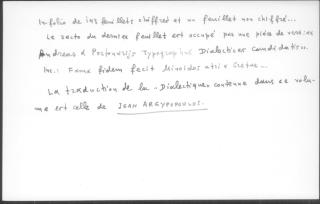 In-folio de 143 feuillets chiffrés et un feuillet non chiffré...
Le recto du dernier feuillet est occupé par une pièce de vers:
Andreas à Portonariis Typographus Dialecticae candidatis..
Inc.: Fama fidem fecit Minoidos
La traduction de la "Dialectique" contenue dans ce volu-
me est celle de JEAN ARGYPOPOULOS.